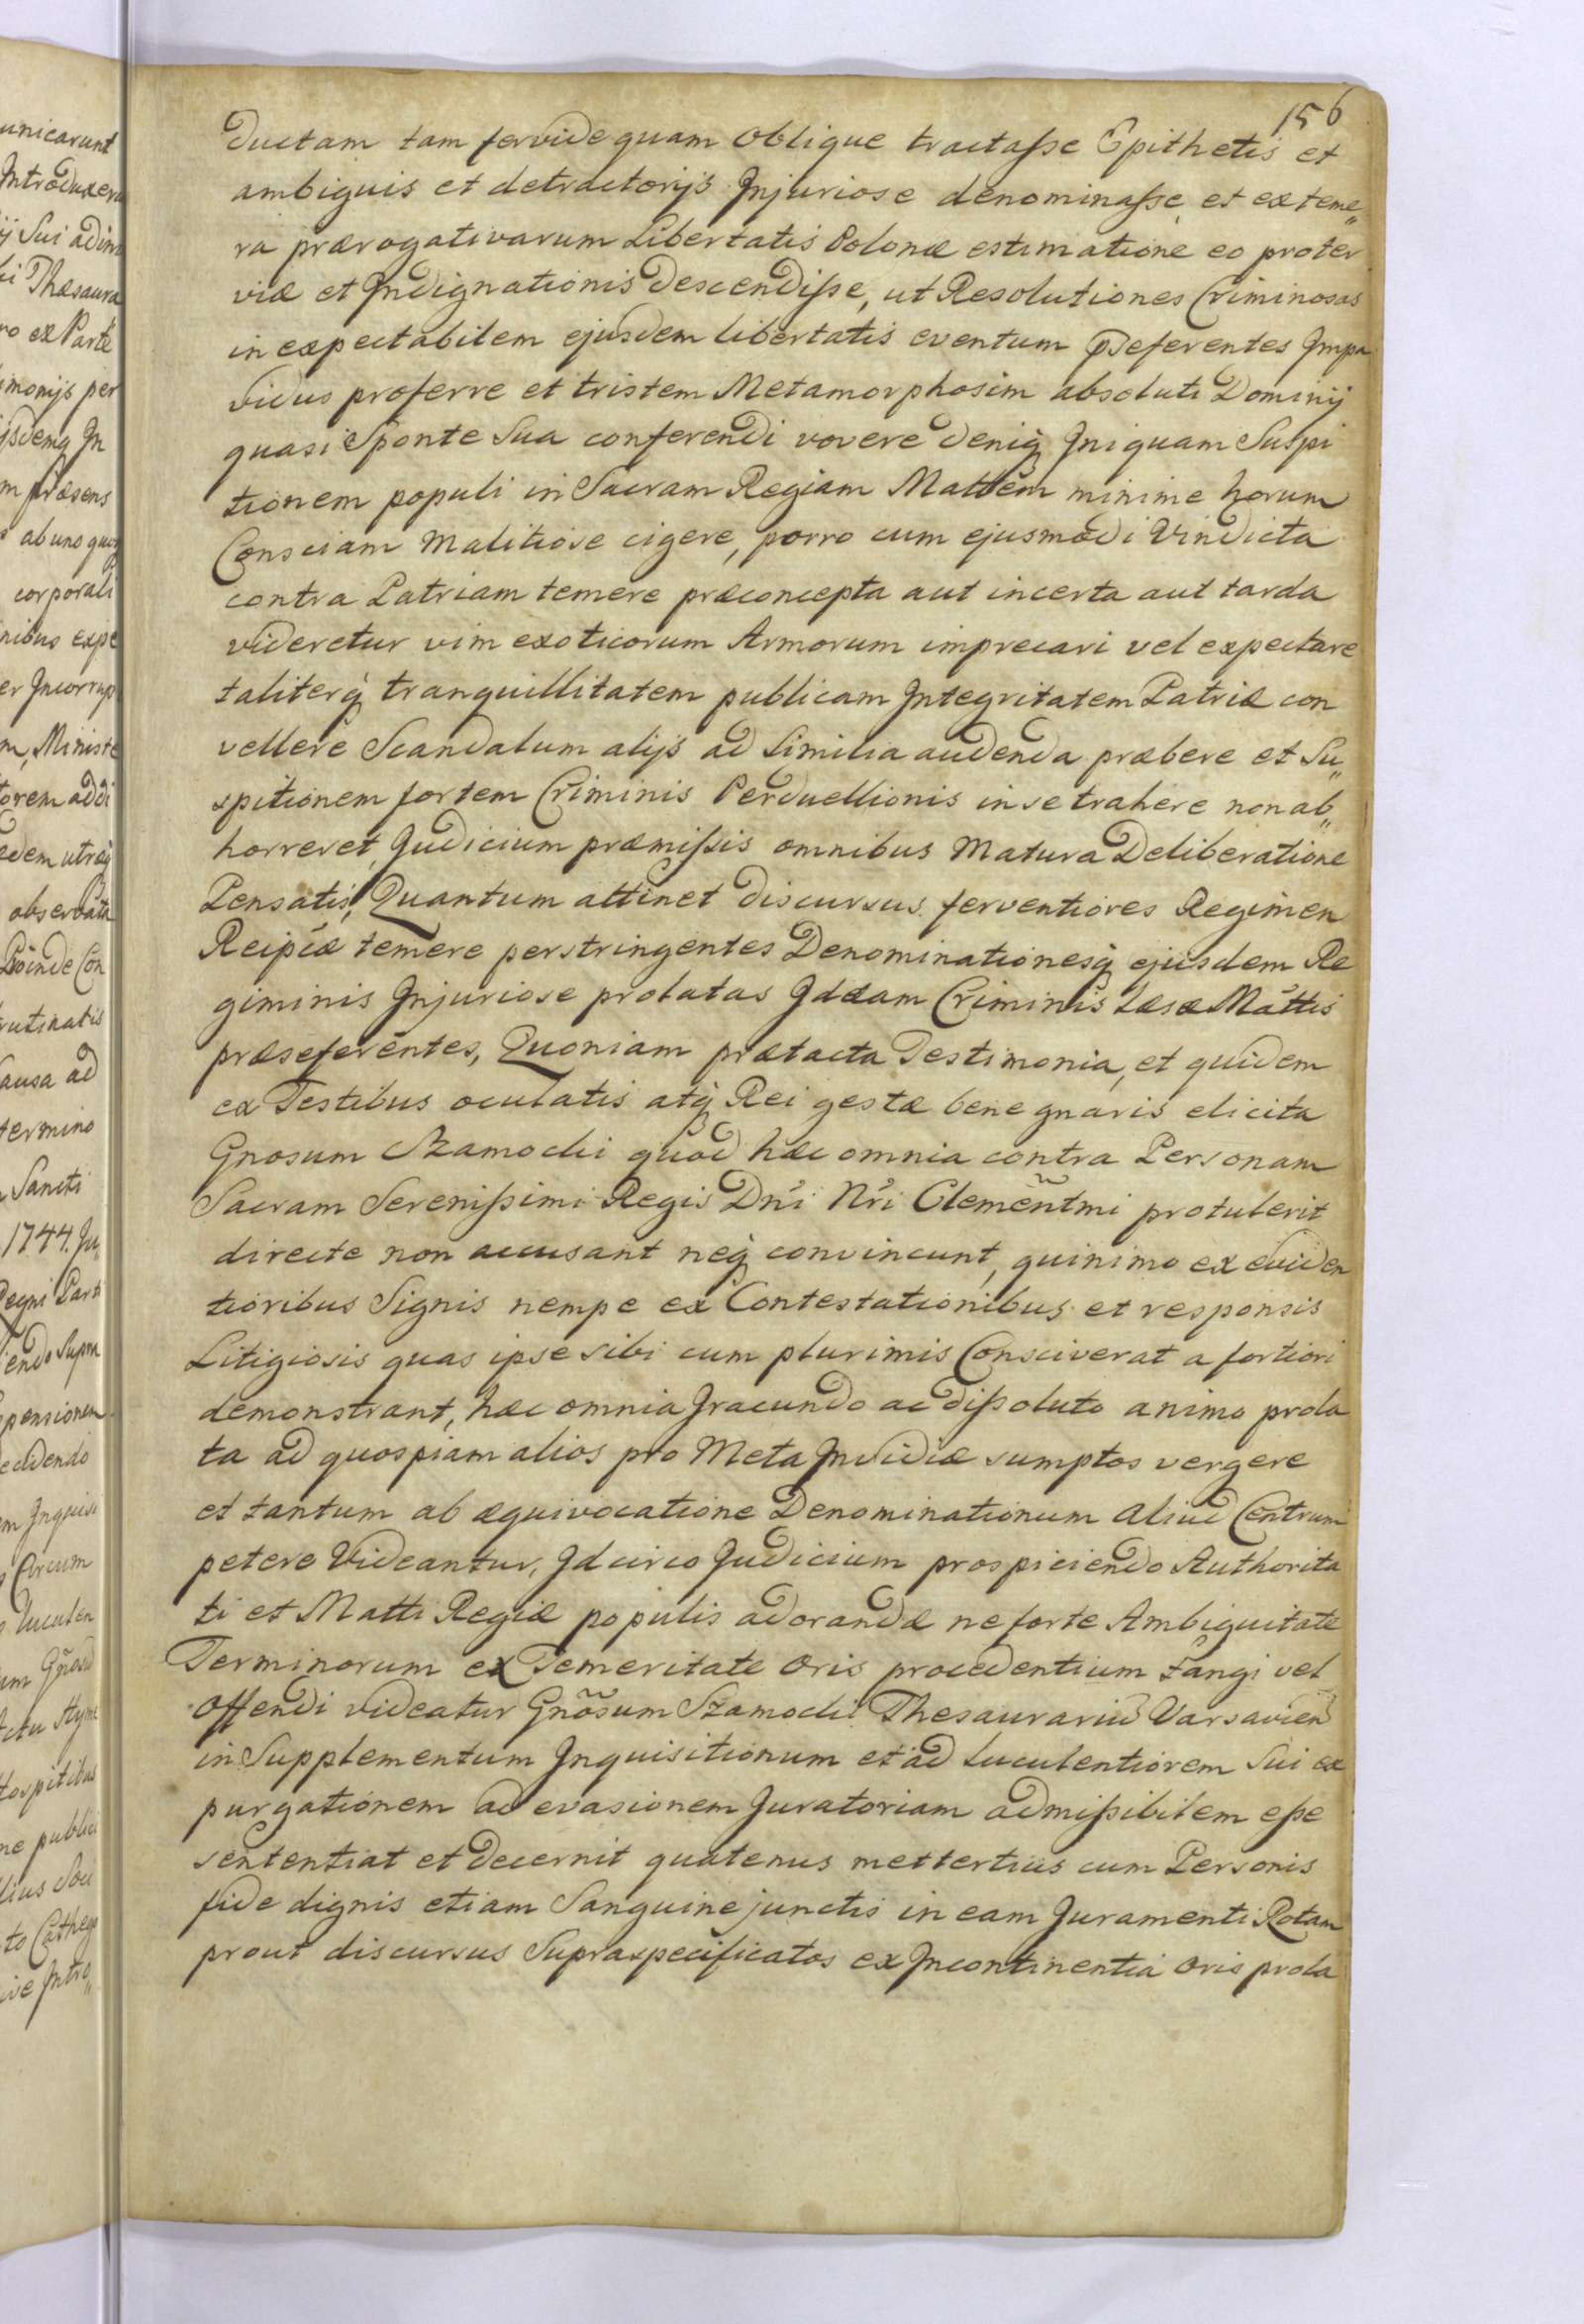 156
ductam tam fervide quam oblique tractasse Epithetis et
ambiguis et detractorijs Injuriose denominasse et ex teme„
ra prærogativarum Libertatis Polonæ estimatione eo proter
viæ et Indignationis Descendisse, ut Resolutiones Criminosas
in expectabilem ejusdem libertatis eventum deferentes Impa
vidus proferre et tristem Metamorphosim absoluti Dominij
quasi Sponte Sua conferendi vovere deniq Iniquam Suspi
tionem populi in Sacram Regiam Mattem minime horum
Consciam Malitiose cigere, porro cum ejusmodi Vindicta
contra Patriam temere præconcepta aut incerta aut tarda
videretur vim exoticorum Armorum imprecari vel expectare
taliterq tranquillitatem publicam Integritatem Patriæ con
vellere Scandalum alijs ad Similia audenda præbere et Su„
spitionem fortem Criminis Perduellionis in se trahere non ab„
horreret, Judicium præmissis omnibus Matura Deliberatione
Pensatis, Quantum attinet discursus ferventiores Regimen
Reipcæ temere perstringentes Denominationesq ejusdem Re
giminis Injuriose prolatas Idæam Criminis Læsæ Mattis
præseferentes, Quoniam prætacta Testimonia, et quidem
ex Testibus oculatis atq Rei gestæ bene gnaris elicita
Gnosum Szamocki quod hæc omnia contra Personam
Sacram Serenissimi Regis Dni Nri Clementmi protulerit
directe non accusant neq convincunt, quinimo ex eviden
tioribus Signis nempe ex Contestationibus et responsis
Litigiosis quas ipse sibi cum plurimis Consciverat a fortiori
demonstrant, hæc omnia Iracundo ac dissoluto animo prola
ta ad quospiam alios pro Meta Invidiæ sumptos vergere
et tantum ab æquivocatione Denominationum aliud Centrum
petere Videantur, Idcirco Judicium prospiciendo Authorita
ti et Matti Regiæ populis adorandæ ne forte Ambiguitate
Terminorum ex Temeritate oris procedentium tangi vel
offendi videatur Gnosum Szamocki Thesaurariũ Varsavien
in Supplementum Inquisitionum et ad luculentiorem Sui ex
purgationem ad evasionem Juratoriam admissibilem esse
sententiat et decernit quatenus mettertius cum Personis
fide dignis etiam Sanguine junctis in eam Juramenti Rotam
prout discursus Supraspecificatos ex Incontinentia oris prola
unicarunt
Introduxeru
Thæsaura
ro ex Parte
imonijs per
m præsens
ab uno quoq
corporali
nibus expe
er Incorrup
m, Ministe
torem addi
edem utræq
observata
Proinde Con
rutinatis
ausa ad
termino
Sancti
1744. Ju„
Regni Parti
iendo Supra
spensionem
ecidendo
m Inquisi
Circum
luculen
ospitibus
ne publici